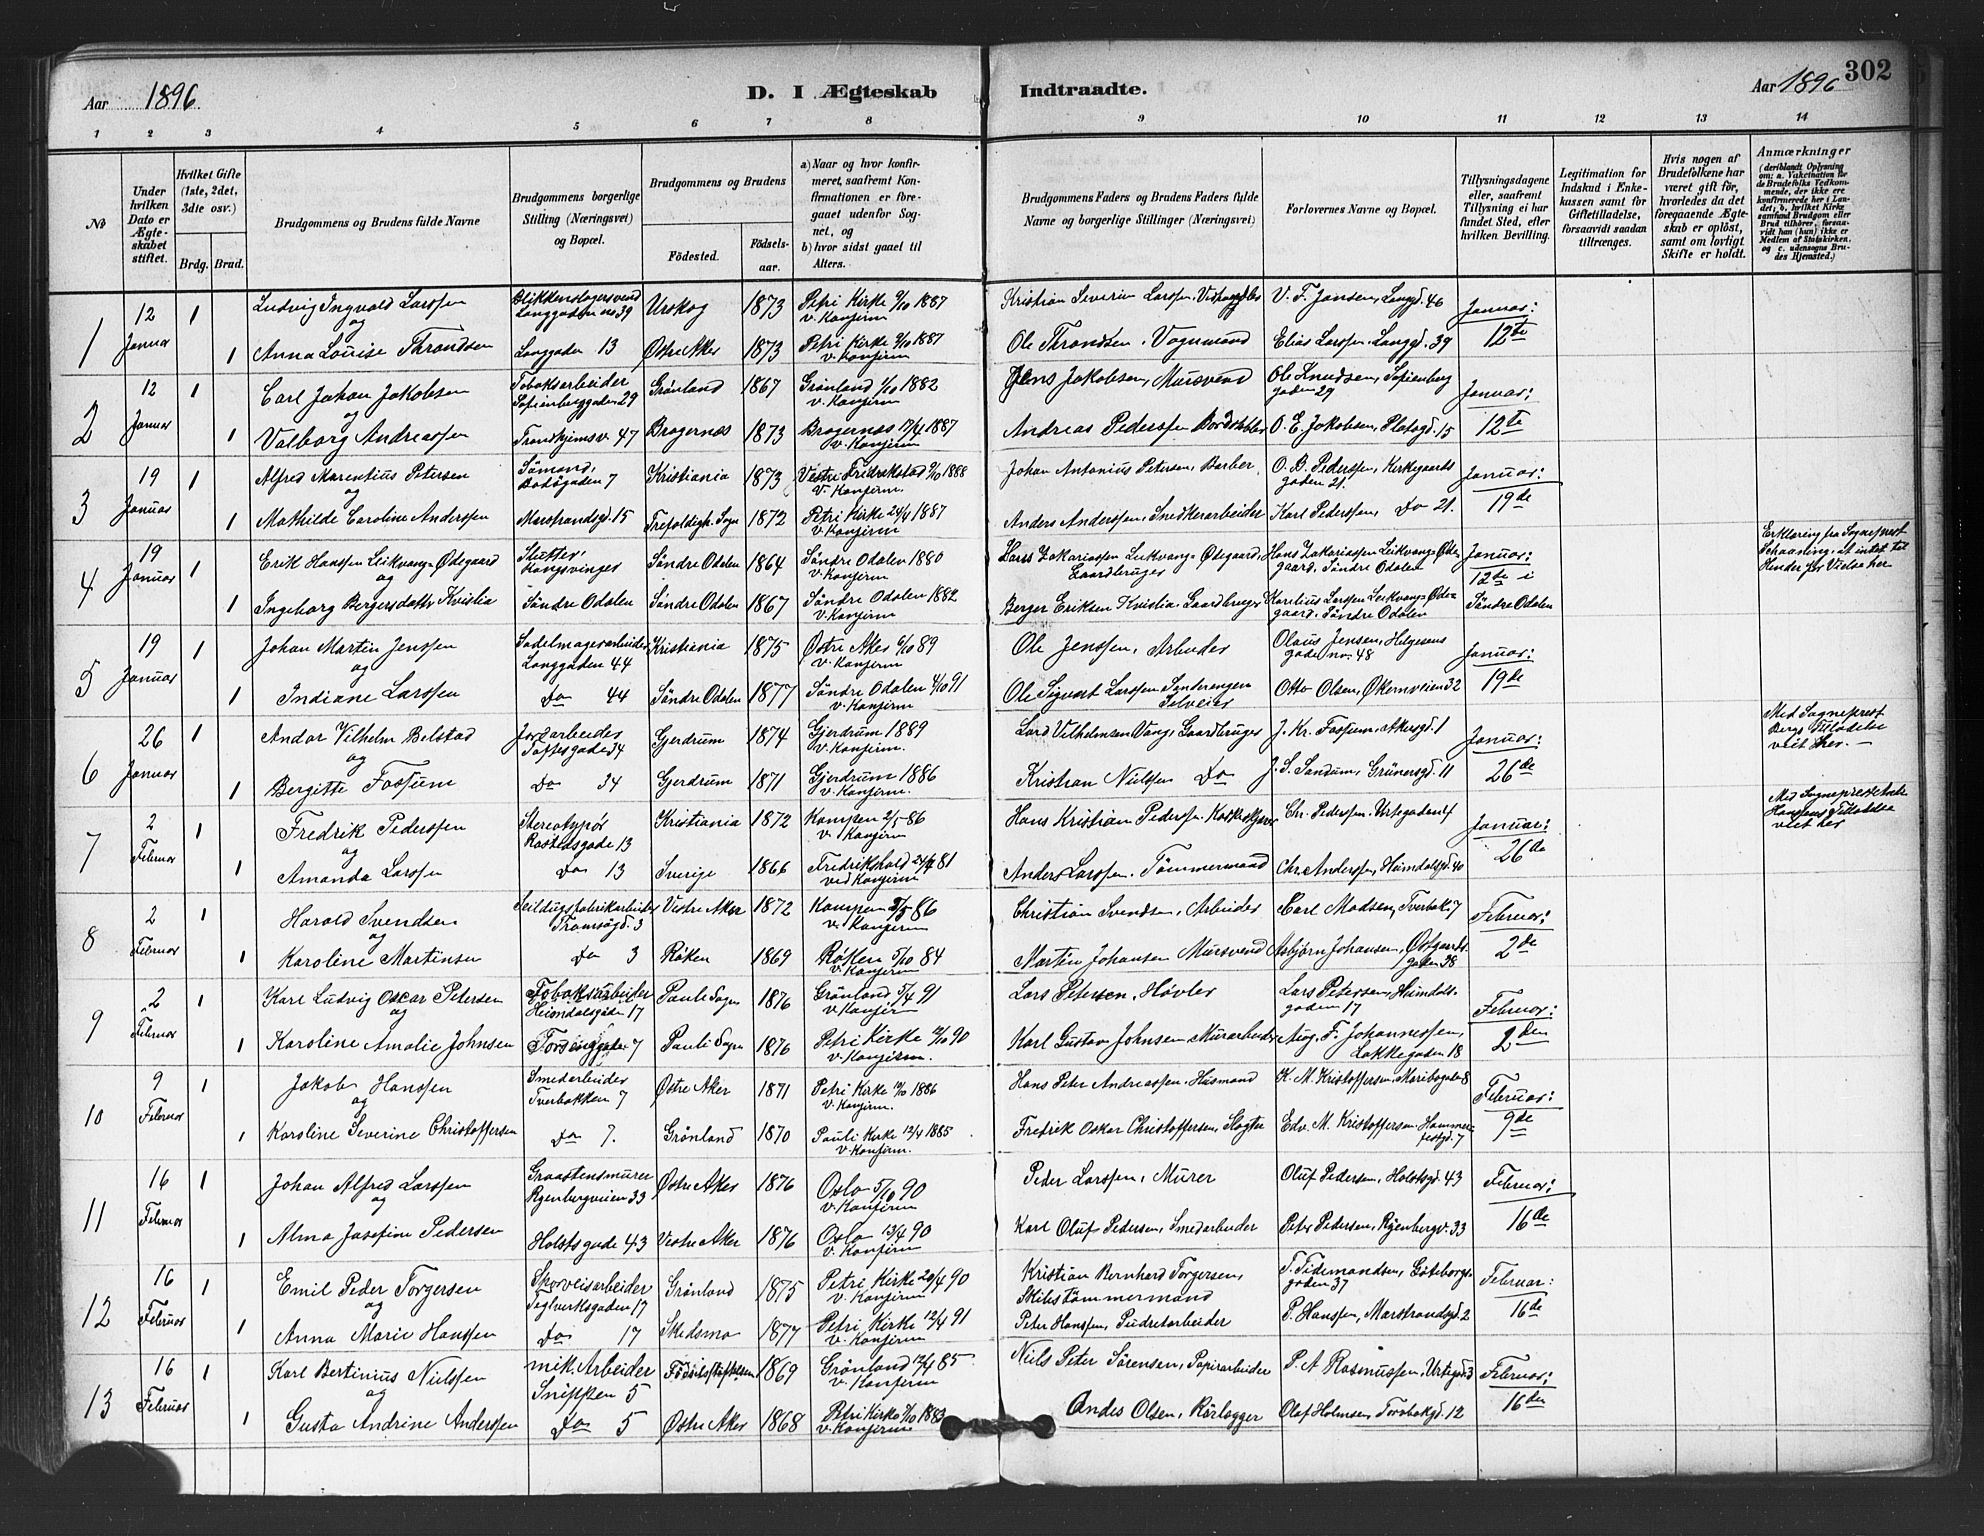 302
Aar 1896.
D. I Ægteskab Indtraadte.
Aar 1896
1 2 3 4 5 6 7 8 9 10 11 12 13 14
No
Under hvilken Dato er Ægteskabet stiftet.
Hvilket Gifte (1ste, 2det, 3die osv.)
Brdg. Brud.
Brudgommens og Brudens fulde Navne
Brudgommens borgerlige Stilling (Næringsvei) og Bopæl.
Brudgommens og Brudens
Fødested.
Fødselsaar.
a) Naar og hvor konfirmeret, saafremt Konfirmationen er foregaaet udenfor Sognet, og
b) hvor sidst gaaet til Alters.
Brudgommens Faders og Brudens Faders fulde Navne og borgerlige Stillinger (Næringsvei)
Forlovernes Navne og Bopæl.
Tillysningsdagene eller, saafremt Tillysning ei har fundet Sted, efter hvilken Bevilling.
Legitimation for Indskud i Enkekassen samt for Giftetilladelse, forsaavidt saadan tiltrænges.
Hvis nogen af Brudefolkene har været gift før, hvorledes da det foregaaende Ægteskab er opløst, samt om lovligt Skifte er holdt.
Anmærkninger
(deriblandt Oplysning om: a. Vakcination for de Brudefolks Vedkommende, der ikke ere konfirmerede her i Landet; b. hvilket Kirkesamfund Brudgom eller Brud tilhører, forsaavidt han (hun) ikke er Medlem af Statskirken, og c. udensogns Brudes Hjemsted.)
1 12 Januar 1 Ludvig Ingvald Larssen Blikkenslagersvend Langgaden no 39 Urskog 1873 Petri Kirke 9/10 1887 v. Konfirm Kristian Severin Larssen, V. F. Jansen, Langgd. 46 Januar: 12te
og
1 Anna Louise Throndsen Langgaden 13 Østre Aker 1873 Petri Kirke 9/10 1887 v. Konfirm Ole Throndsen, Vognmand Elias Larssen, Langgd. 39
2 12 Januar 1 Carl Johan Jakobsen Tobaksarbeider Sofienberggaden 29 Grønland 1867 Grønland 1/10 1882 v. Konfirm Jens Jakobsen, Mursvend Ole Knudsen, Sofienberg gaden 29 Januar: 12te
og
1 Valborg Andreassen Trondhjemsv. 47 Bragernæs 1873 Bragernæs 17/4 1887 v. Konfirm Andreas Pederssen O. E. Jakobsen, Platogd. 15
3 19 Januar 1 Alfred Marentius Petersen Sømand, Bodøgaden 7 Kristiania 1873 Vestre Fredrikstad 7/10 1888 v. Konfirm. Johan Antonius Petersen, Barber O. B. Pederssen, Kirkegaards gaden 21. Januar: 19de
og
1 Mathilde Caroline Anderssen Marstrandsgd. 15 Trefoldigh. Sogn 1872 Petri Kirke 24/4 1887 v. Konfirm Anders Anderssen, Snedkerarbeider Karl Pederssen, Do 21.
4 19 Januar 1 Erik Hanssen Leikvang-Ødegaard Kongsvinger Søndre Odalen 1864 Søndre Odalen 1880 v. Konfirm Lars Zakariassen Leikvang-Ødegaard, Gaardbruger Hans Zakariassen Leikvang-Ødegaard, Søndre Odalen Januar: 12te i Søndre Odalen Erklæring fra Sogneprest at intet til Hinder for Vielse her
og
1 Ingeborg Bergersdatter Kvistia Søndre Odalen Søndre Odalen 1867 Søndre Odalen 1882 v. Konfirm Berger Eriksen Kvistia, Gaardbruger Karelius Larssen Leikvang-Ødegaard, Søndre Odalen
5 19 Januar 1 Johan Martin Jenssen Sadelmagerarbeider Langgaden 44 Kristiania 1875 Østre Aker 6/10 89 v. Konfirm Ole Jenssen, Arbeider Olaus Jensen, Helgesens gade no: 48 Januar: 19de
og
1 Indiane Larssen Do 44 Søndre Odalen 1877 Søndre Odalen 4/10 91 v. Konfirm Ole Sigvart Larssen Sanderengen Selveier Otto Olsen, Økernveien 32
6 26 Januar 1 Andor Vilhelm Belstad Jordarbeider Toftesgade 34 Gjerdrum 1874 Gjerdrum 1889 v. Konfirm. Lars Vilhelmsen Vang, Gaardbruger J. Kr. Fossum, Akersgd. 1 Januar: 26de Med Sogneprest Bergs Tilladelse viet her. —
og
1 Bergitte Fossum Do 34 Gjerdrum 1871 Gjerdrum 1886 v. Konfirm. Kristian Nielssen Do J. S. Sandum, Grünersgd. 11
7 2 Februar 1 Fredrik Pederssen Stereotypør Rostedsgade 13 Kristiania 1872 Kampen 2/5 86 v. Konfirm Hans Kristian Pederssen Chr. Pederssen, Urtegaden 4 Januar: 26de Med Sogneprest Hanssens Tilladelse viet her
og
1 Amanda Larssen Do 13 Sverige 1866 Fredrikshald 24/4 81 ved Konfirm Anders Larssen, Tømmermand Chr. Anderssen, Heimdalsgd. 40
8 2 Februar 1 Harald Svendsen Seildugsfabrikarbeider Tromsøgd. 3 Vestre Aker 1872 Kampen 2/5 86 v. Konfirm Christian Svendsen, Arbeider Carl Madsen, Tverbak. 7 Februar: 2de
og
1 Karoline Martinsen Do 3 Røken 1869 Røken 5/10 84 v. Konfirm Martin Johansen Mursvend Asbjørn Johansen, Østgaards gaden 38
9 2 Februar 1 Karl Ludvig Oscar Petersen Tobaksarbeider Heimdalsgaden 17 Pauli Sogn 1876 Grønland 5/4 91 v. Konfirm Lars Petersen, Høvler Lars Petersen, Heimdals- gaden 17 Februar: 2den
og
1 Karoline Amalie Johnsen 7 Pauli Sogn 1876 Petri Kirke 12/10 90 v. Konfirm. Karl Gustav Johnsen Murarbeider Aug. F. Johannessen, Lakkegaden 18
10 9 Februar 1 Jakob Hanssen Smedarbeider Tverbakken 7 Østre Aker 1871 Petri Kirke 10/10 1886 v. Konfirm. Hans Peter Andreassen, Husmand K. M. Kristoffersen, Maribogaden 8 Februar: 9de
og
1 Karoline Severine Christoffersen Do 7. Grønland 1870 Pauli Kirke 12/4 1885 v. Konfirm. Fredrik Oskar Christoffersen, Slagter Edv. M. Kristoffersen, Hammerfestgd. 7
11 16 Februar 1 Johan Alfred Larssen Graastensmurer Ryenbergveien 33 Østre Aker 1876 Oslo 5/10 90 v. Konfirm Peder Larssen, Murer Oluf Pedersen, Holstsgd. 43 Februar: 16de
og
1 Alma Josefine Pedersen Holstsgade 43 Vestre Aker 1876 Oslo 13/4 90 v. Konfirm Karl Oluf Pedersen, Smedarbeider Peter Pedersen, Ryenbergv. 33
12 16 Februar 1 Emil Peder Torgersen Sporveisarbeider Teglverksgaden 17 Grønland 1875 Petri Kirke 20/4 90 v. Konfirm Kristian Bernhard Torgersen, Skibstømmermand T. Tidemandsen, Göteborgs- gaden 37 Februar: 16de
og
1 Anna Marie Hanssen Do 17 Skedsmo 1877 Petri Kirke 12/4 91 v. Konfirm Peter Hanssen, Pudretarbeider P. Hanssen, Marstrandsgd. 2
13 16 Februar 1 Karl Bertinius Nielssen mek. Arbeider Snippen 5 Fødselsstiftelsen 1869 Grønland 12/4 85 v. Konfirm Niels Peter Sørensen, Papirarbeider P. A. Rasmussen, Urtegd. 3 Februar: 16de
og
1 Gusta Andrine Anderssen Do 5 Østre Aker 1868 Petri Kirke 7/10 1883 v. Konfirm Andes Olsen, Rørlægger Olaf Holmsen, Torvbakgd. 12